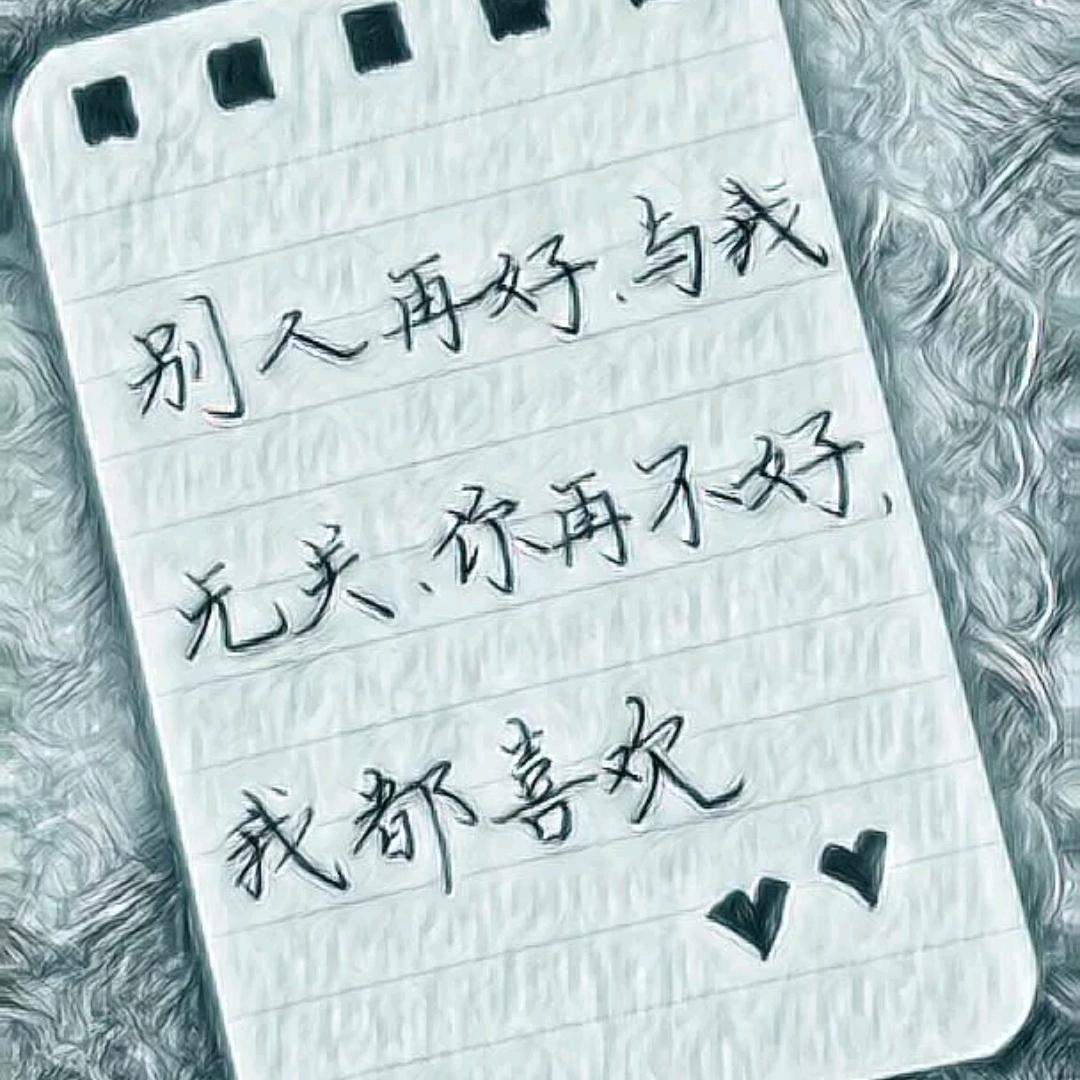 别人再好、与我
无关、你再不好、
我都喜欢